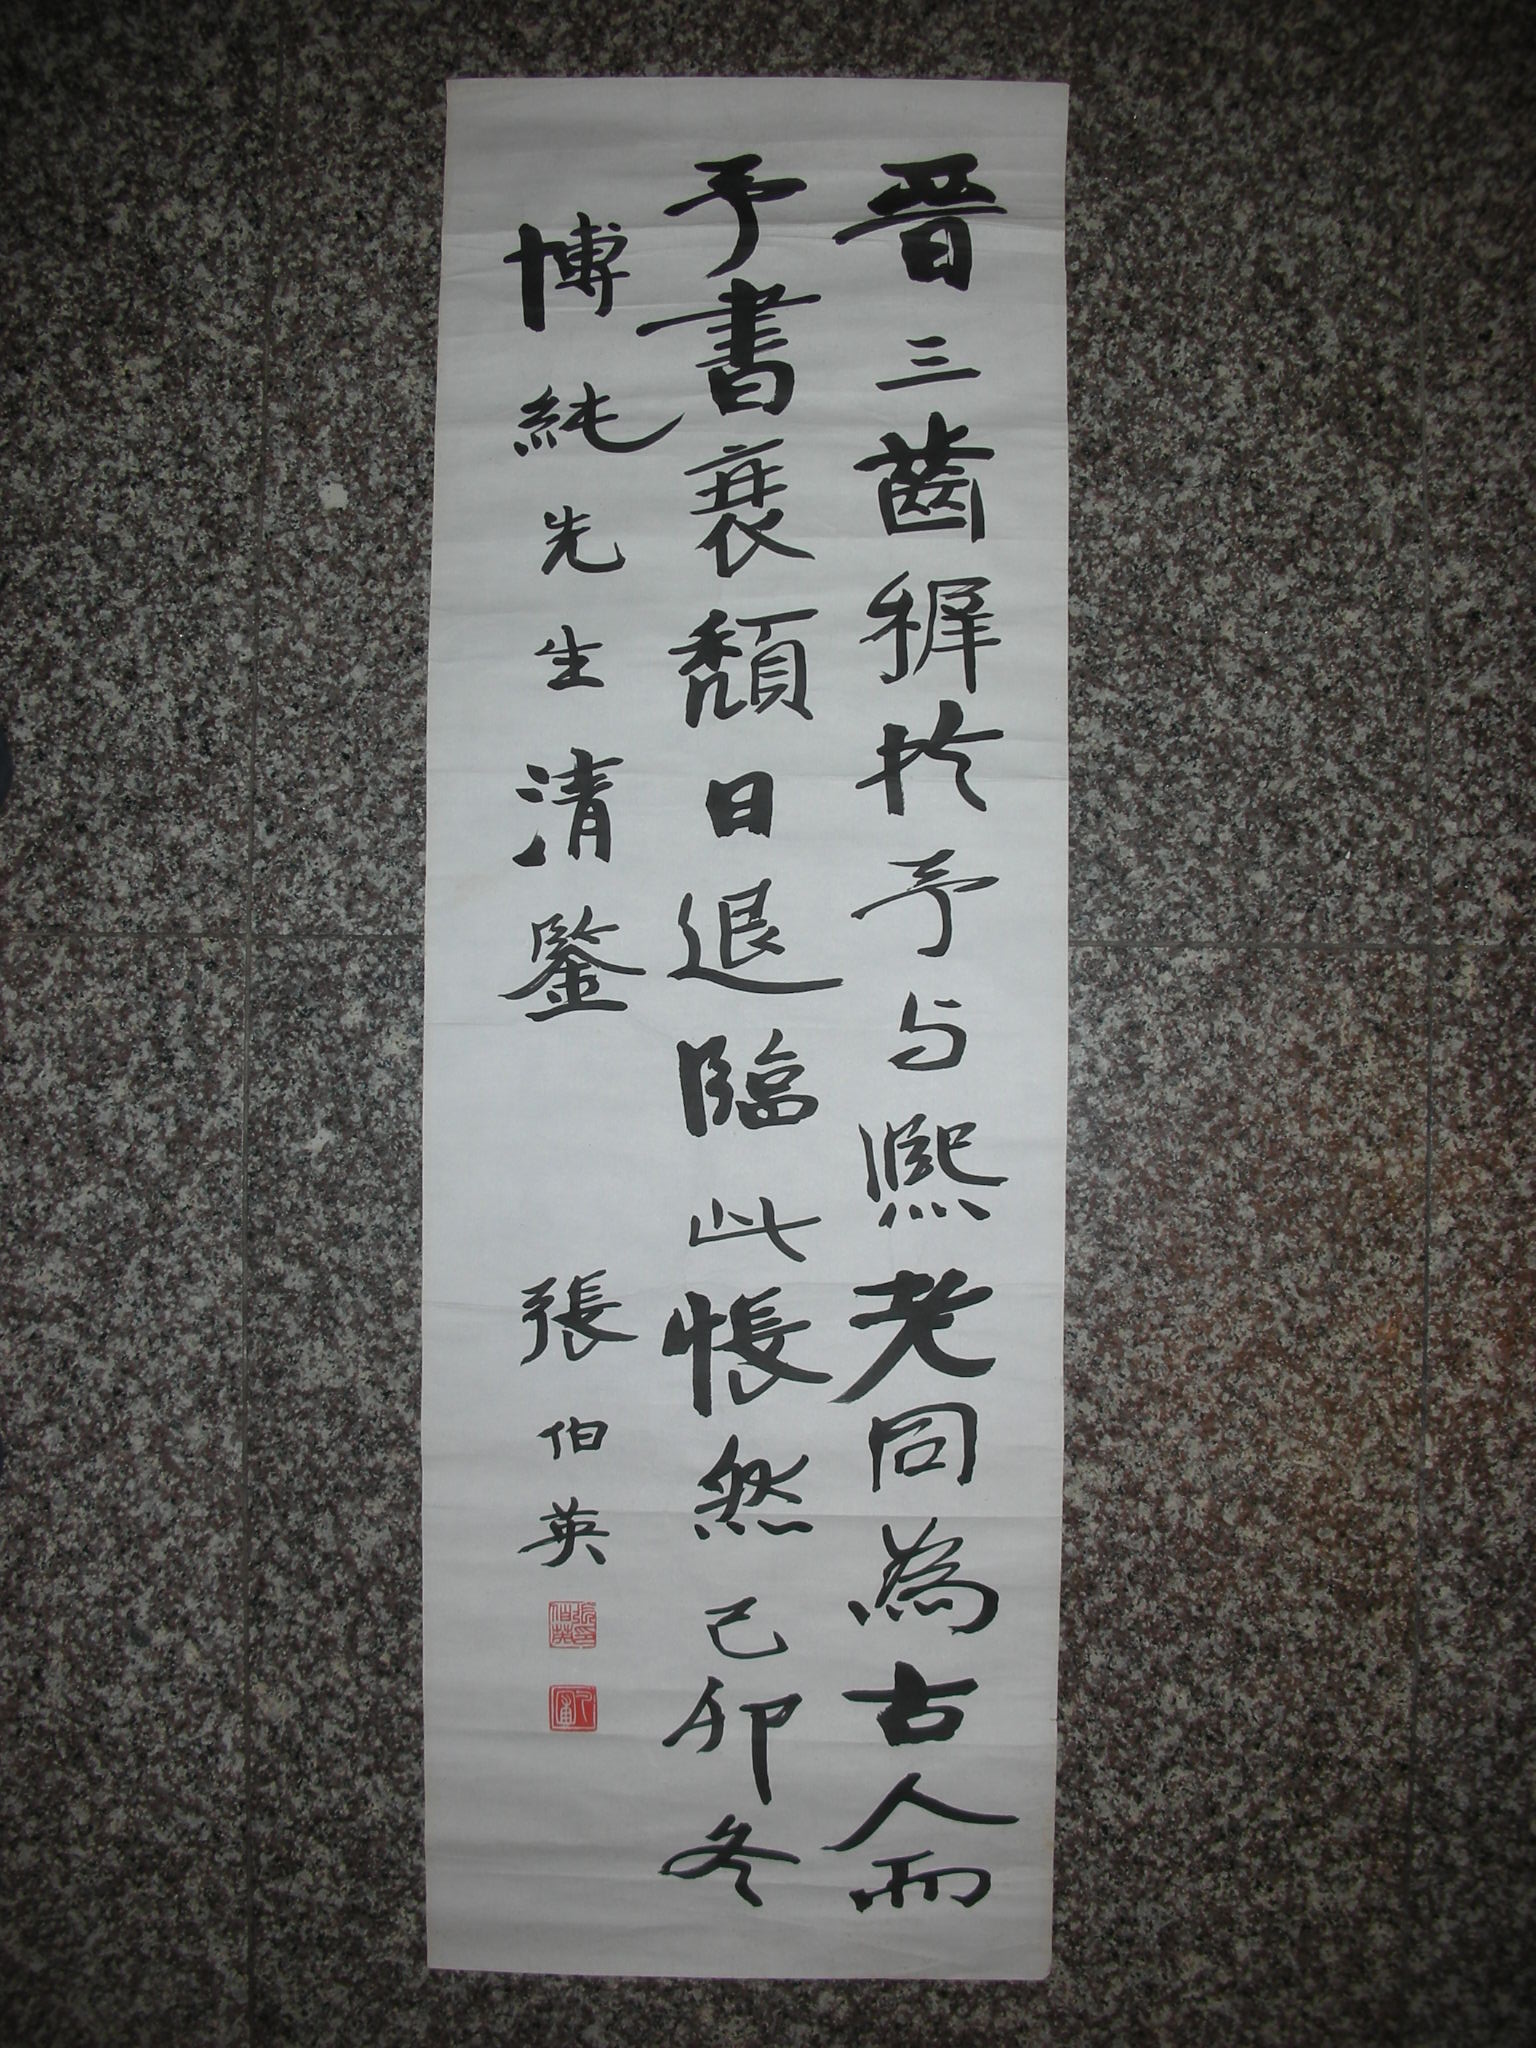 晉三齒穉於予与熙老同為古人而
予書衰頹日退臨此悵然己卯冬
博純先生清鑒
張伯英
張伯英印